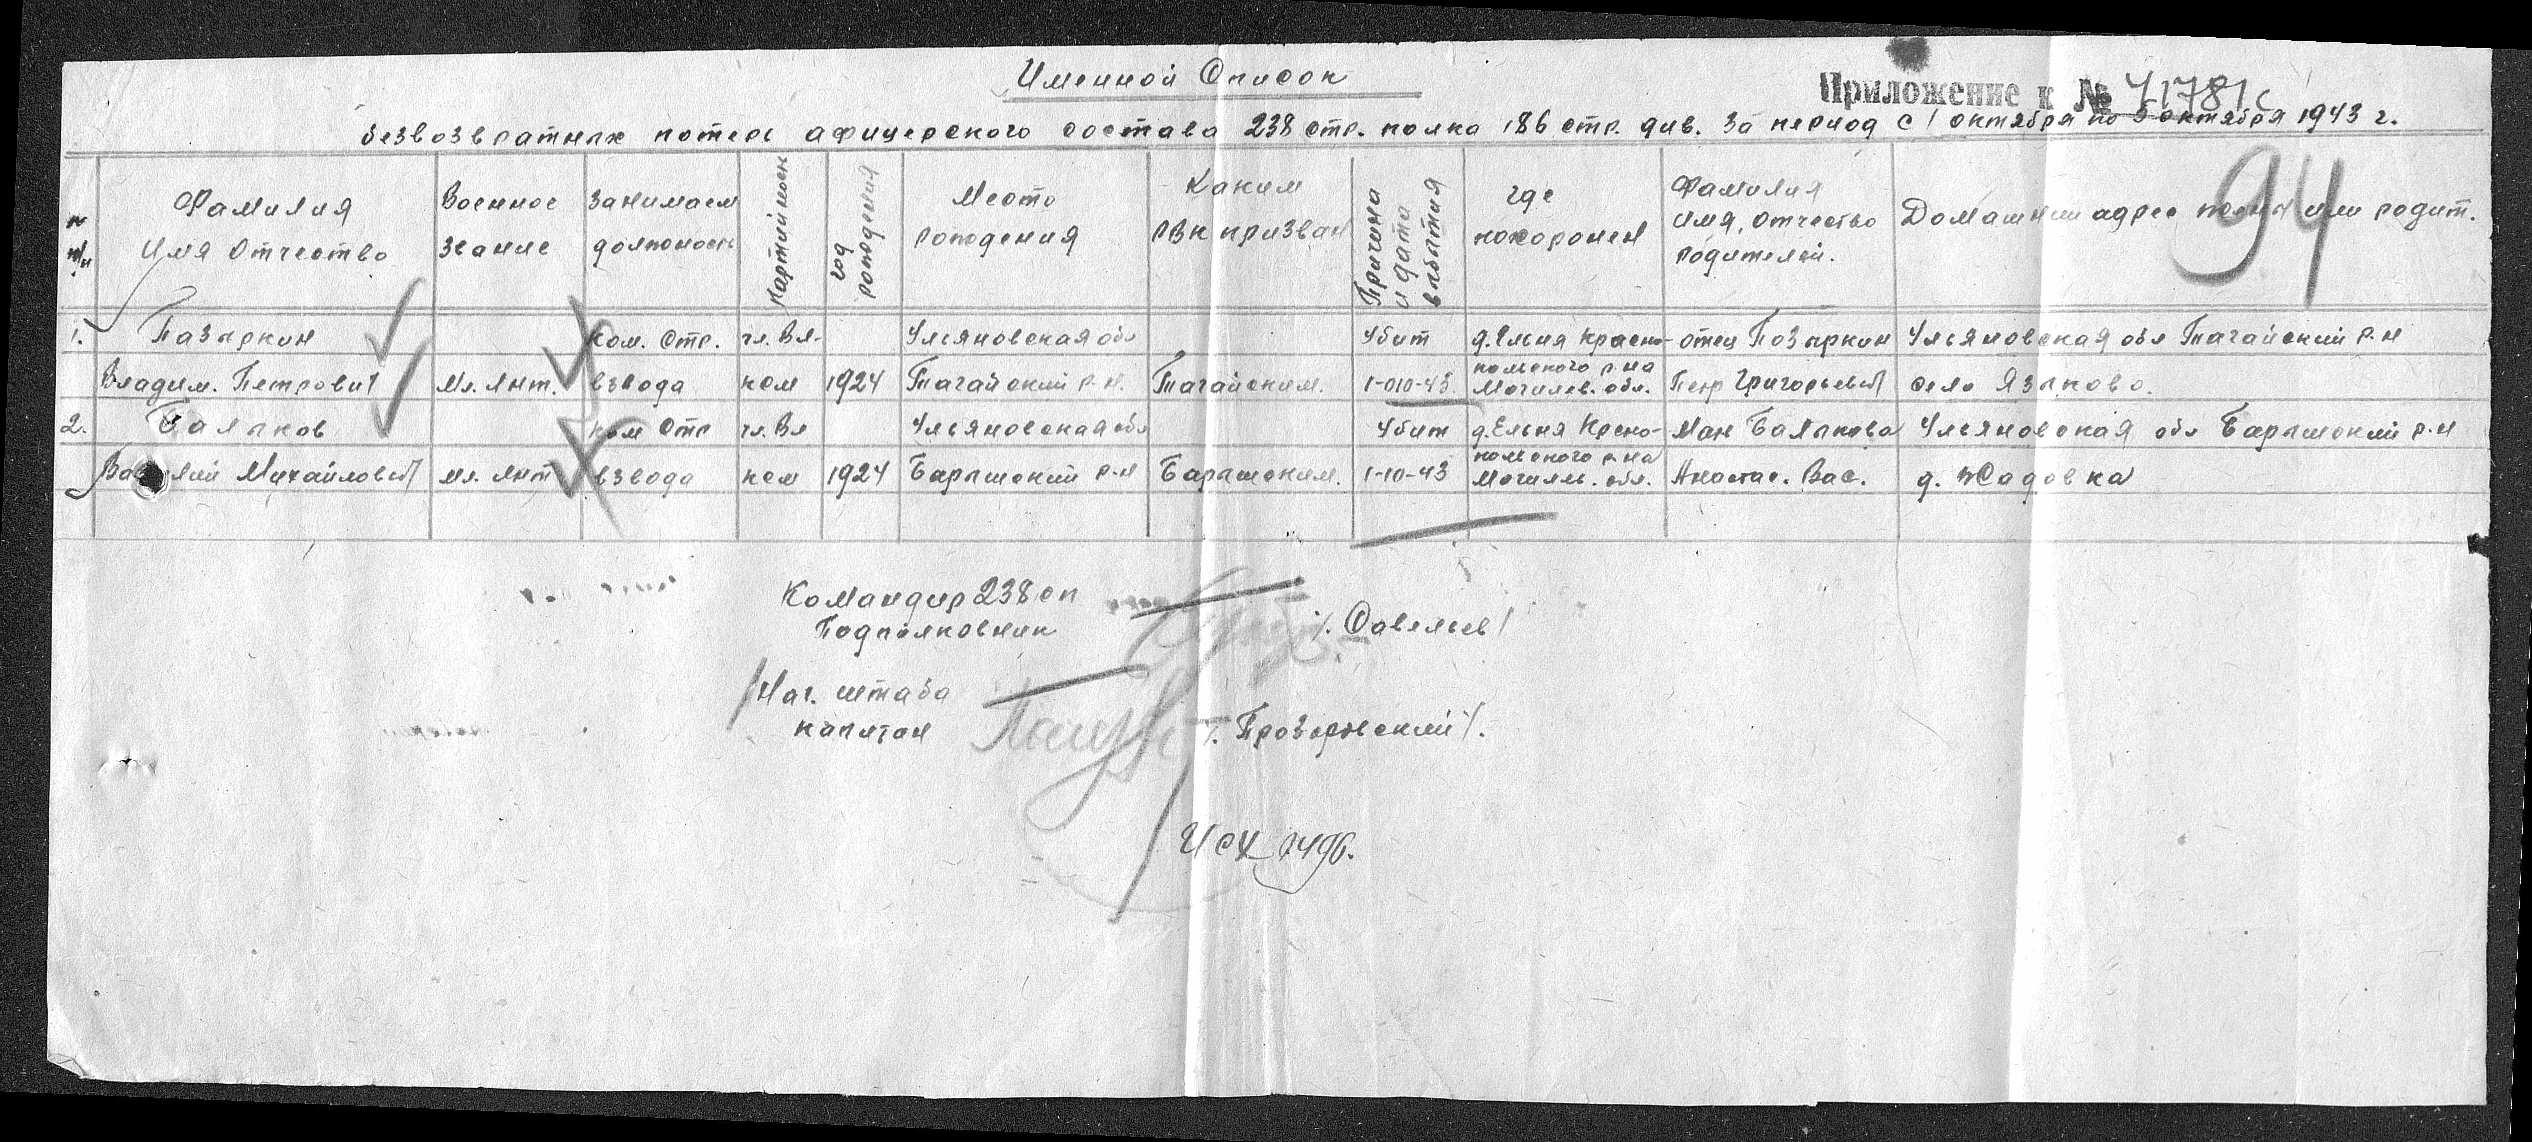 Именной Список
Приложение к № 41781с
безвозвратных потерь афицерского состава 238 стр. полка 186 стр. див. за период с 1 октября по 5 октября 1943 г.
94
№ п/п
Фамилия Имя Отчество
Военное звание
Занимаем должность
Партийность
год рождения
Место рождения
Каким РВК призван
Причина и дата выбытия
где похоронен
Фамилия имя, отчество родителей.
Домашний адрес жены или родит.
1. Пазыркин ком. Стр. чл. Вл. Ульяновская обл Убит д. Ельня Красно- отец Позыркин Ульяновская обл Тагайский р-н
Владим. Петрович Мл. Лнт. взвода ком 1924 Тагайский р-н. Тагайским. 1-010-43 польского р-на Могилев. обл. Петр Григорьевич село Языково.
2. Балыков ком Стр чл. Вл Ульяновская обл Убит д. Ельня Крсно- Мать Балыкова Ульяновская обл Барышский р-н
Василий Михайлович мл. лнт взвода ком 1924 Барышский р-н Барышским. 1-10-43 польского р-на Могилев. обл. Анастас. Вас. д. Садовка
Командир 238 сп
Подполковник /. Савельев/
Нач. штаба
капитан /. Прозоровский/.
Исх